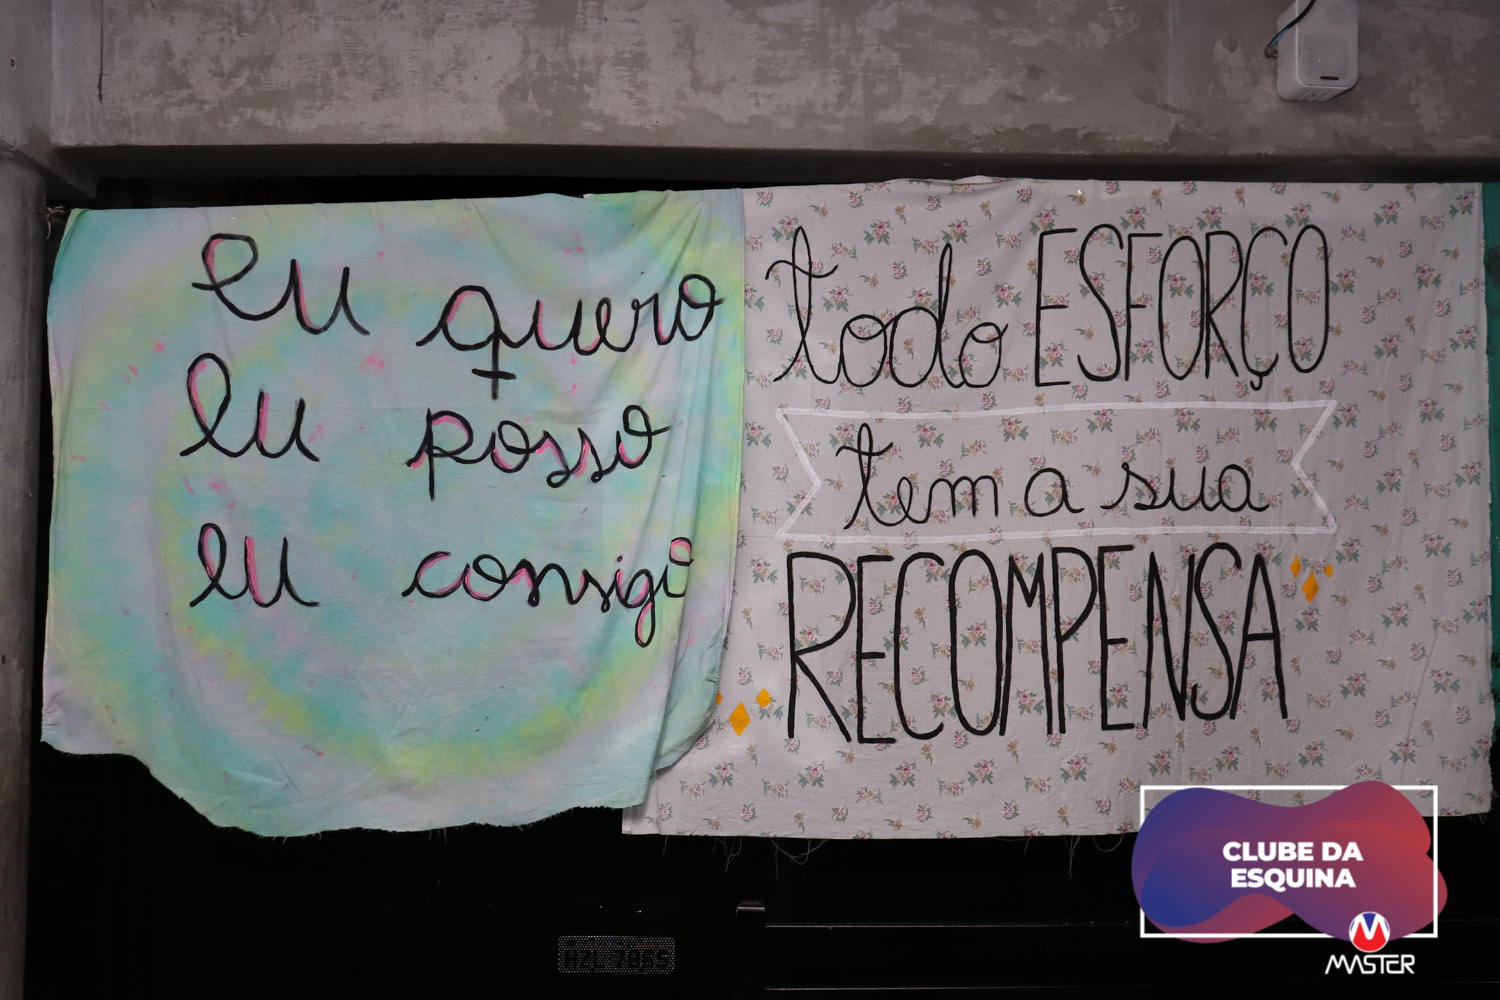 eu quero
eu posso
eu consigo
todo ESFORÇO
tem a sua
RECOMPENSA
CLUBE DA
ESQUINA
MASTER